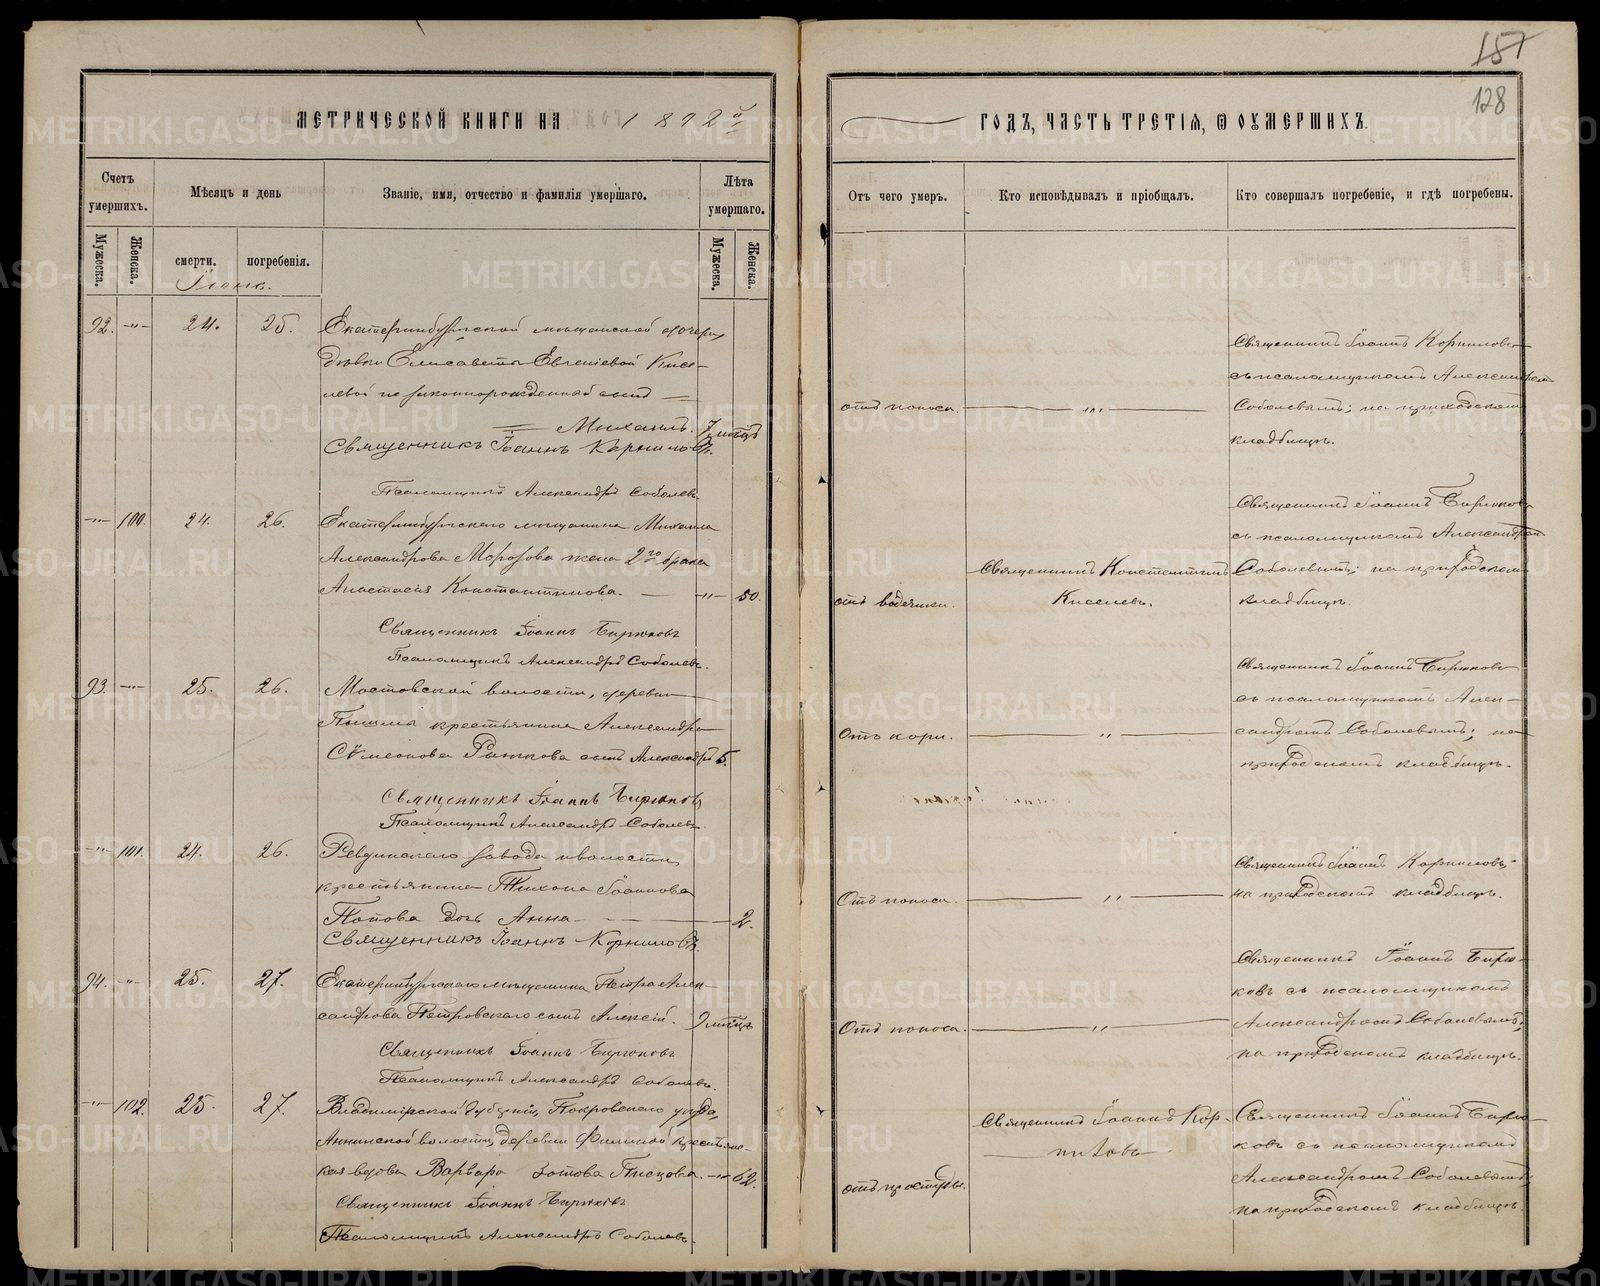 157
128
МЕТРИЧЕСКОЙ КНИГИ НА 1892й
ГОДЪ, ЧАСТЬ ТРЕТІЯ, Ѿ ОУМЕРШИХЪ.
Счетъ умершихъ.
Мѣсяцъ и день
Званіе, имя, отчество и фамилія умершаго.
Лѣта умершаго.
Отъ чего умеръ.
Кто исповѣдывалъ и пріобщалъ.
Кто совершалъ погребеніе, и гдѣ погребены.
Мужеска.
Женска.
смерти.
погребенія.
Мужеска.
Женска.
Іюнь.
92. -"- 24. 25. Екатеринбургской мѣщанской дочери,
дѣвки Елисаветы Евгеніевой Кисе-
левой незаконнорожденный сынъ
Михаилъ. 7 мѣсц
отъ поноса.
Священникъ Іоаннъ Корниловъ
съ псаломщикомъ Александромъ
Соболевымъ; на приходскомъ
кладбищѣ.
Священникъ Іоаннъ Корниловъ.
Псаломщикъ Александръ Соболевъ.
-"- 100. 24. 26. Екатеринбургскаго мѣщанина Михаила
Александрова Морозова жена 2го брака
Анастасія Константинова. -"- 50.
отъ водянки.
Священникъ Константинъ
Киселевъ.
Священникъ Іоаннъ Бирюковъ
съ псаломщикомъ Александромъ
Соболевымъ; на приходскомъ
кладбищѣ.
Священникъ Іоаннъ Бирюковъ
Псаломщикъ Александръ Соболевъ.
93. -"- 25. 26. Мостовской волости, деревни
крестьянина Александра
Сѵмеонова сынъ Александръ 5.
Отъ кори. "
Священникъ Іоаннъ Бирюковъ
съ псаломщикомъ Алек-
сандромъ Соболевымъ; на
приходскомъ кладбищѣ.
Священникъ Іоаннъ Бирюковъ
Псаломщикъ Александръ Соболевъ.
-"- 101. 24. 26. Ревдинскаго завода и волости,
крестьянина Тихона Іоаннова
Попова дочь Анна 2.
Отъ поноса. "
Священникъ Іоаннъ Корниловъ,
на приходскомъ кладбищѣ.
Священникъ Іоаннъ Корниловъ.
94. " 25. 27. Екатеринбургскаго мѣщанина Петра Алек-
сандрова Петровскаго сынъ Алексій. 9 мѣсц
Отъ поноса. "
Священникъ Іоаннъ Бирю-
ковъ съ псаломщикомъ
Александромъ Соболевымъ;
на приходскомъ кладбищѣ.
Священникъ Іоаннъ Бирюковъ
Псаломщикъ Александръ Соболевъ.
-"- 102. 25. 27. Владимірской губерніи, Покровскаго уѣзда,
Аннинской волости, деревни Филиной крестьянс-
кая вдова Варвара Зотова -"- 62.
отъ простуды.
Священникъ Іоаннъ Кор-
ниловъ
Священникъ Іоаннъ Бирю-
ковъ съ псаломщикомъ
Александромъ Соболевымъ;
на приходскомъ кладбищѣ.
Священникъ Іоаннъ Бирюковъ
Псаломщикъ Александръ Соболевъ.
METRIKI.GASO-URAL.RU